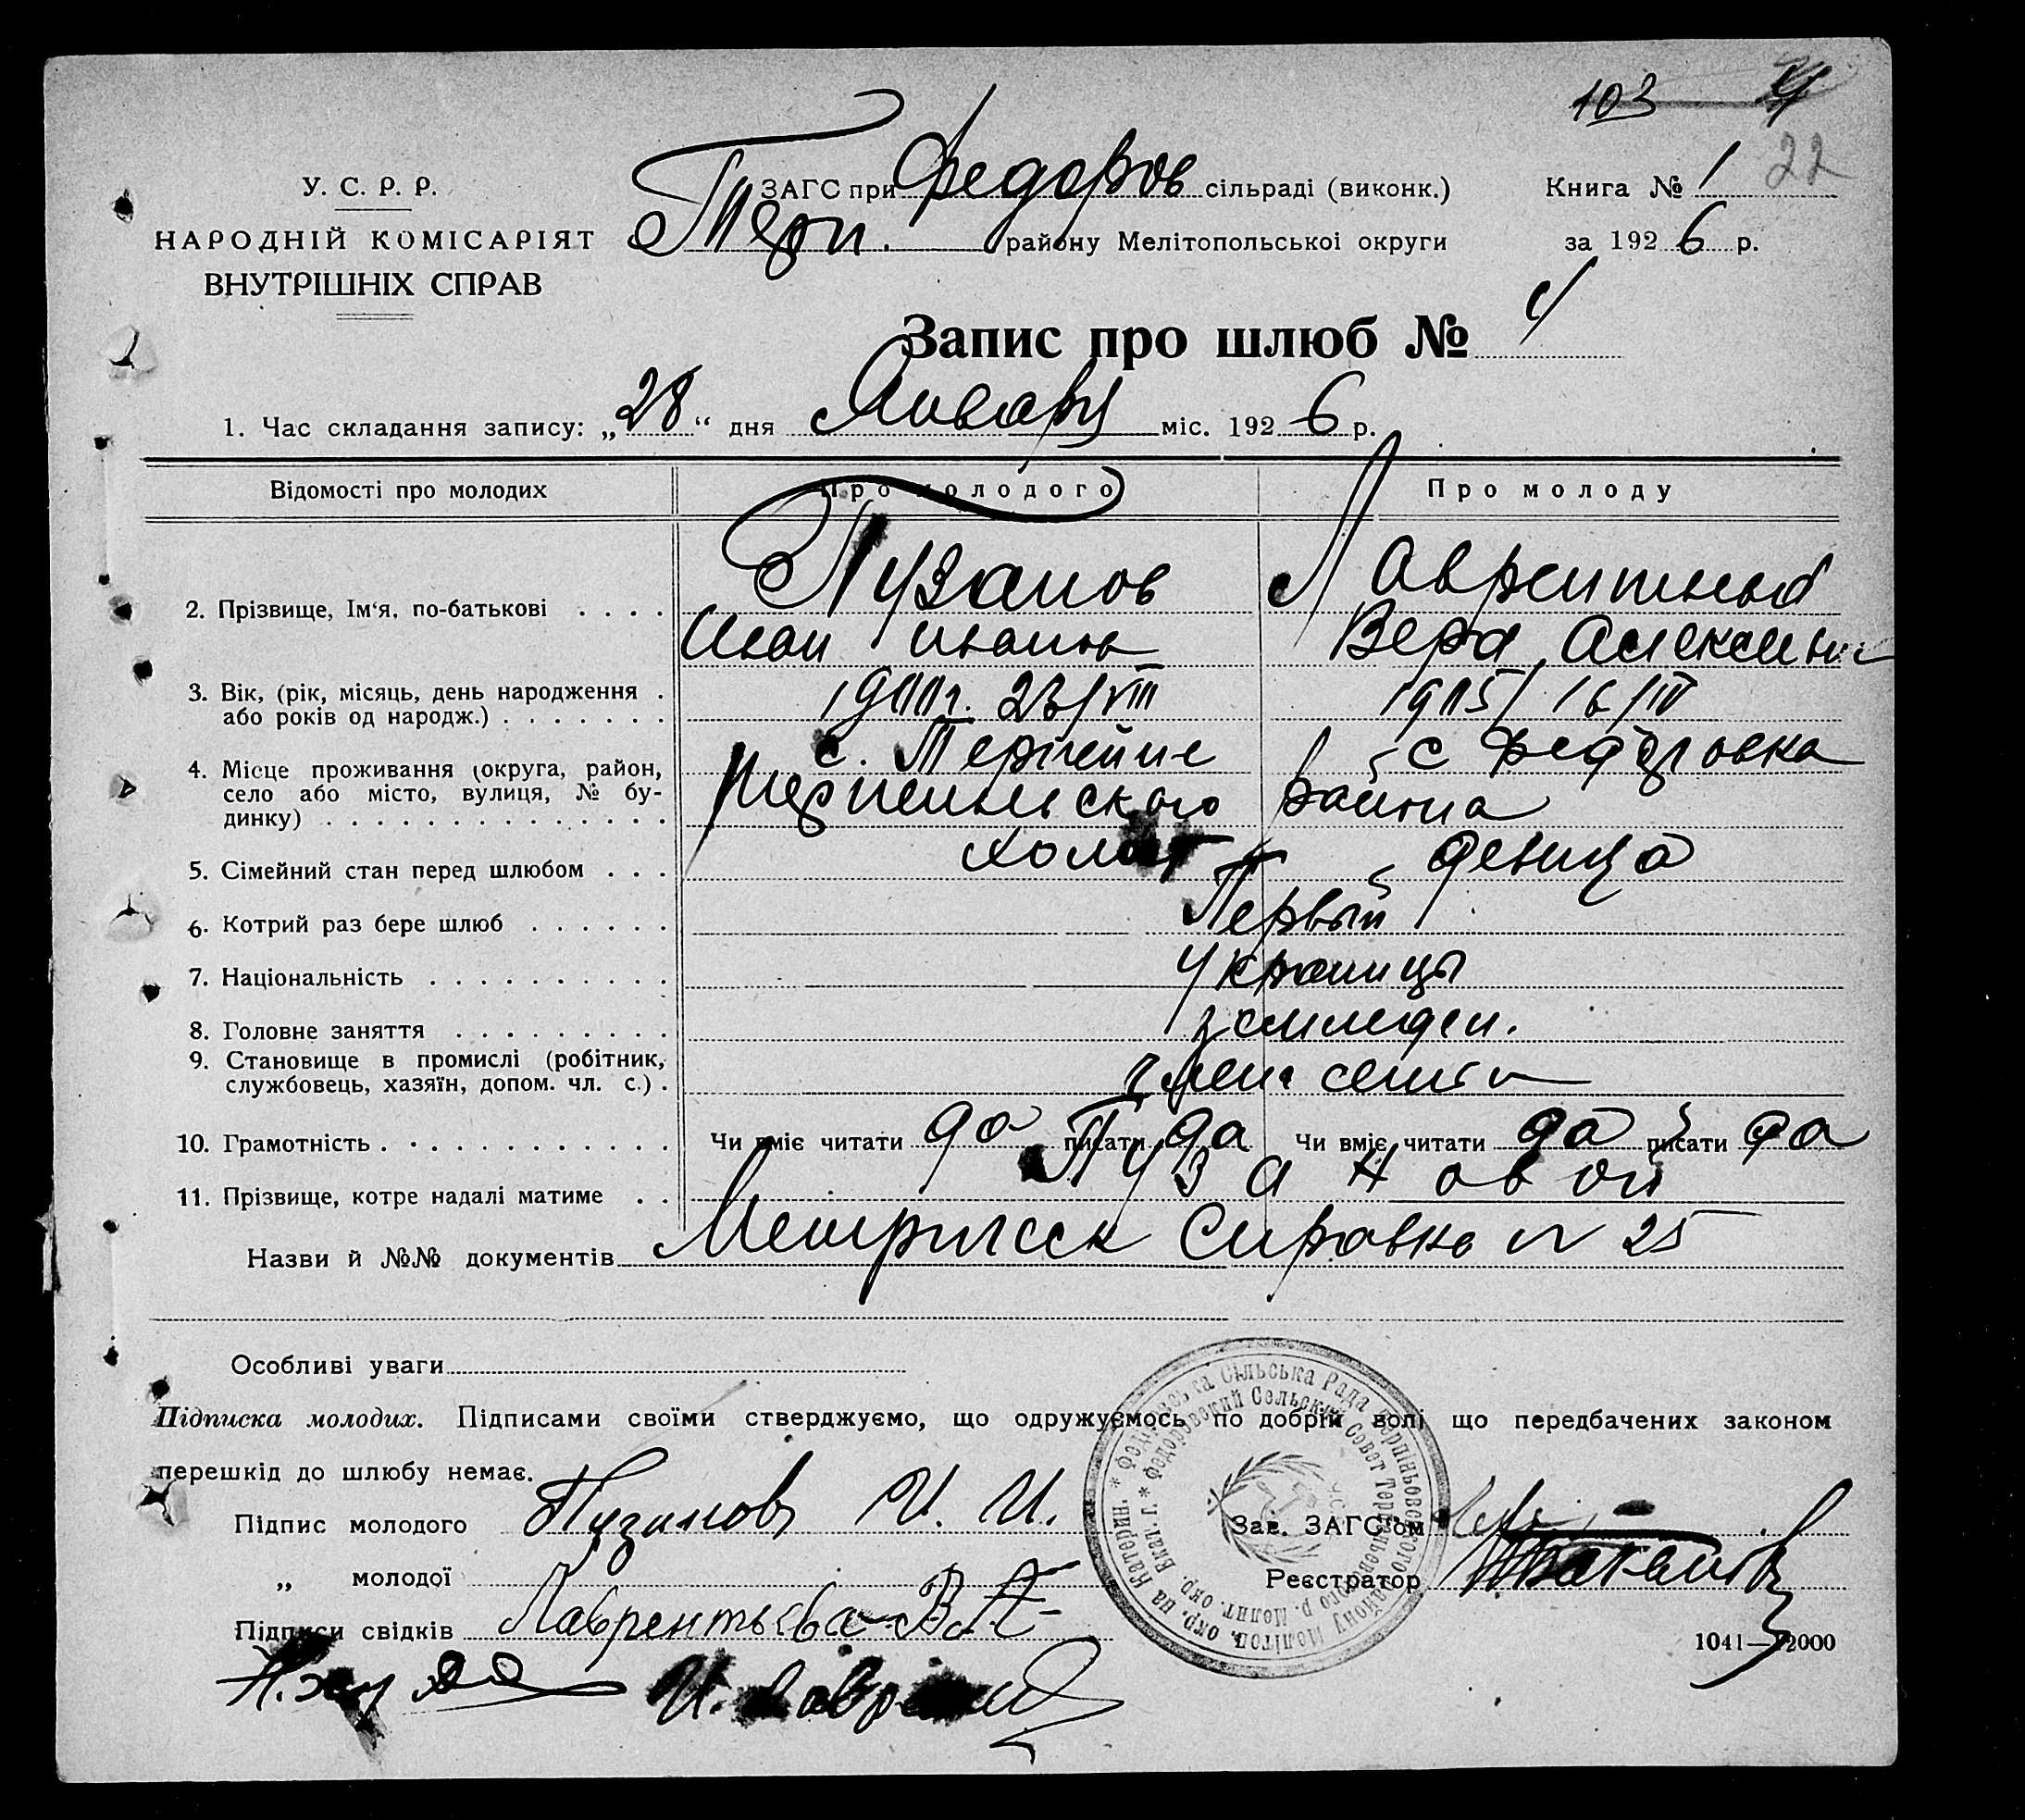 103
22
У. С. Р. Р.
НАРОДНІЙ КОМІСАРІЯТ
ВНУТРІШНІХ СПРАВ
ЗАГС при Федоров сільраді (виконк.)
Терп. району Мелітопольської округи
Книга № 1
за 1926 р.
Запис про шлюб № 4
1. Час складання запису: „28“ дня Января міс. 1926 р.
Відомості про молодих Про молодого Про молоду
2. Прізвище, Ім'я, по-батькові . . . . Пузанов Лаврентьев
Иван Иванов Вера Алексеев
3. Вік, (рік, місяць, день народження .
або років од народж.) . . . . . . . 23/VIII 16/IV
4. Місце проживання (округа, район,
село або місто, вулиця, № бу-
динку) . . . . . . . . . . . . . . .
с. Терпение с Федоровка
Терпеньевского района
5. Сімейний стан перед шлюбом . . . холост девица
6. Котрий раз бере шлюб . . . . . . Первый
7. Національність . . . . . . . . . . Украинцы
8. Головне заняття . . . . . . . . . земледел.
9. Становище в промислі (робітник,
службовець, хазяїн, допом. чл. с.) . член семьи
10. Грамотність . . . . . . . . . . . . Чи вміє читати да писати да Чи вміє читати да писати да
11. Прізвище, котре надалі матиме . . Пузановой
Назви й №№ документів Метрическ Справка № 25
Особливі уваги
Підписка молодих. Підписами своїми стверджуємо, що одружуємось по добрій волі що передбачених законом
перешкід до шлюбу немає.
Підпис молодого Пузанов И. И.
„ молодої Лаврентьева В А
Підписи свідків
Зав. ЗАГС'ом
Реєстратор
1041—12000
Сільська Рада Терпіньовского району Мелітоп. окр. на Катерин. *
Федоровский Сельский Совет Терпеньевского р. Мелит. окр. Екат. г. *